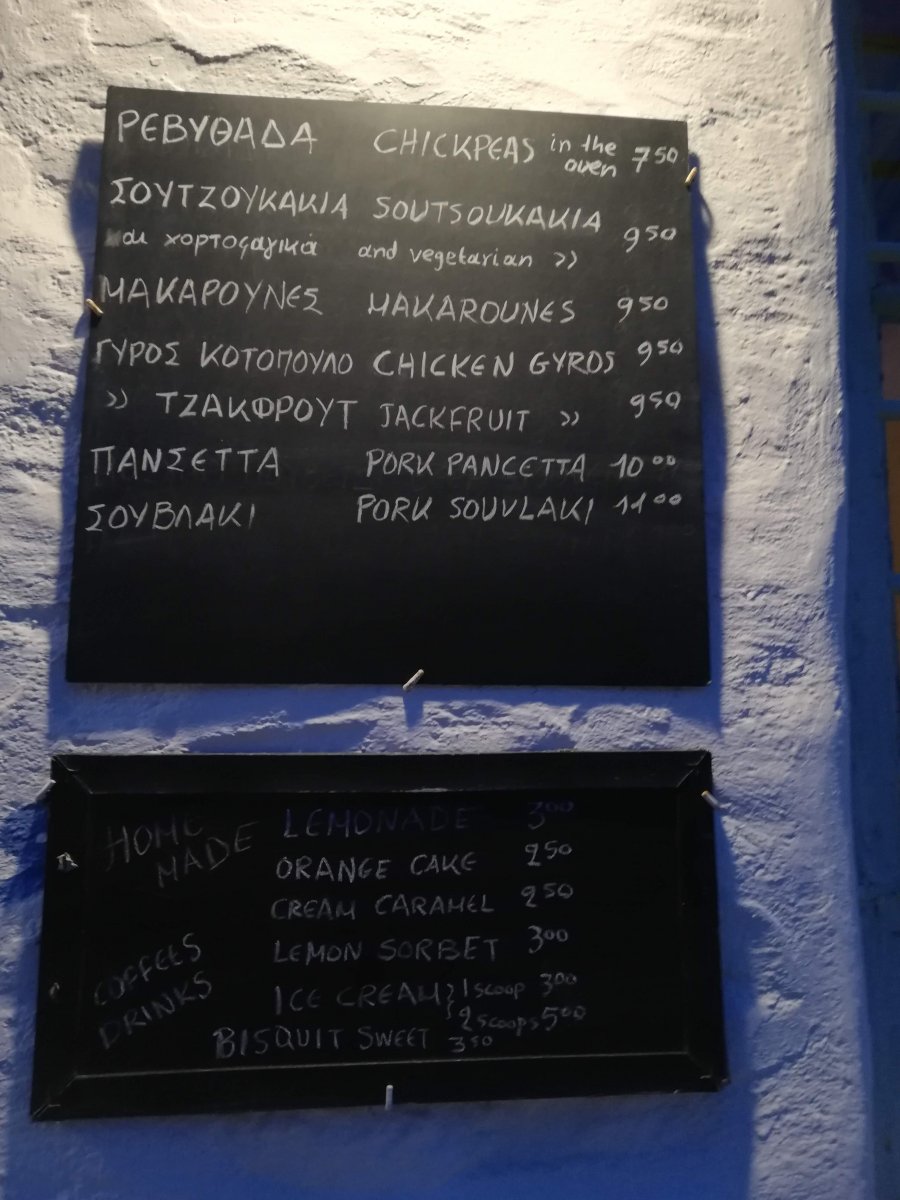 ΡΕΒΥΘΑΔΑ CHICKPEAS in the oven 7 50
ΣΟΥΤΖΟΥΚΑΚΙΑ SOUTSOUKAKIA
και χορτοφαγικά and vegetarian >> 9 50
ΜΑΚΑΡΟΥΝΕΣ MAKAROUNES 9 50
ΓΥΡΟΣ ΚΟΤΟΠΟΥΛΟ CHICKEN GYROS 9 50
>> ΤΖΑΚΦΡΟΥΤ JACKFRUIT >> 9 50
ΠΑΝΣΕΤΤΑ PORK PANCETTA 10 00
ΣΟΥΒΛΑΚΙ PORK SOUVLAKI 11 00
HOME MADE
LEMONADE 3 00
ORANGE CAKE 2 50
CREAM CARAMEL 2 50
LEMON SORBET 3 00
COFFEES
DRINKS
ICE CREAM } 1 scoop 3 00
2 scoops 5 00
BISQUIT SWEET 3 50